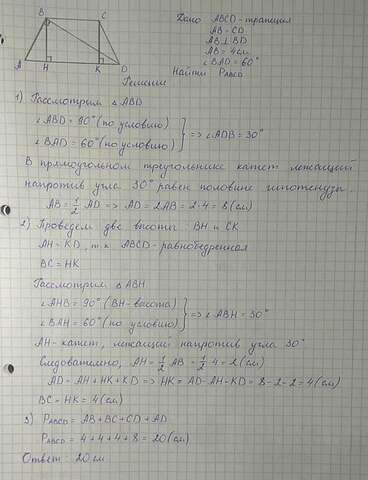 B C
A H K D
Дано ABCD - трапеция
AB = CD
AB ⊥ BD
AB = 4см
∠BAD = 60°
Найти PABCD
Решение
1) Рассмотрим △ABD
∠ABD = 90° (по условию)
∠BAD = 60° (по условию) } => ∠ADB = 30°
В прямоугольном треугольнике катет лежащий
напротив угла 30° равен половине гипотенузы.
AB = 1/2 AD => AD = 2AB = 2·4 = 8 (см)
2) Проведем две высоты BH и CK
AH = KD, т.к. ABCD - равнобедренная
BC = HK
Рассмотрим △ABH
∠AHB = 90° (BH - высота)
∠BAH = 60° (по условию) } => ∠ABH = 30°
AH - катет, лежащий напротив угла 30°
Следовательно, AH = 1/2 AB = 1/2 · 4 = 2 (см)
AD = AH + HK + KD => HK = AD - AH - KD = 8 - 2 - 2 = 4 (см)
BC = HK = 4 (см)
3) PABCD = AB + BC + CD + AD
PABCD = 4 + 4 + 4 + 8 = 20 (см)
Ответ: 20 см